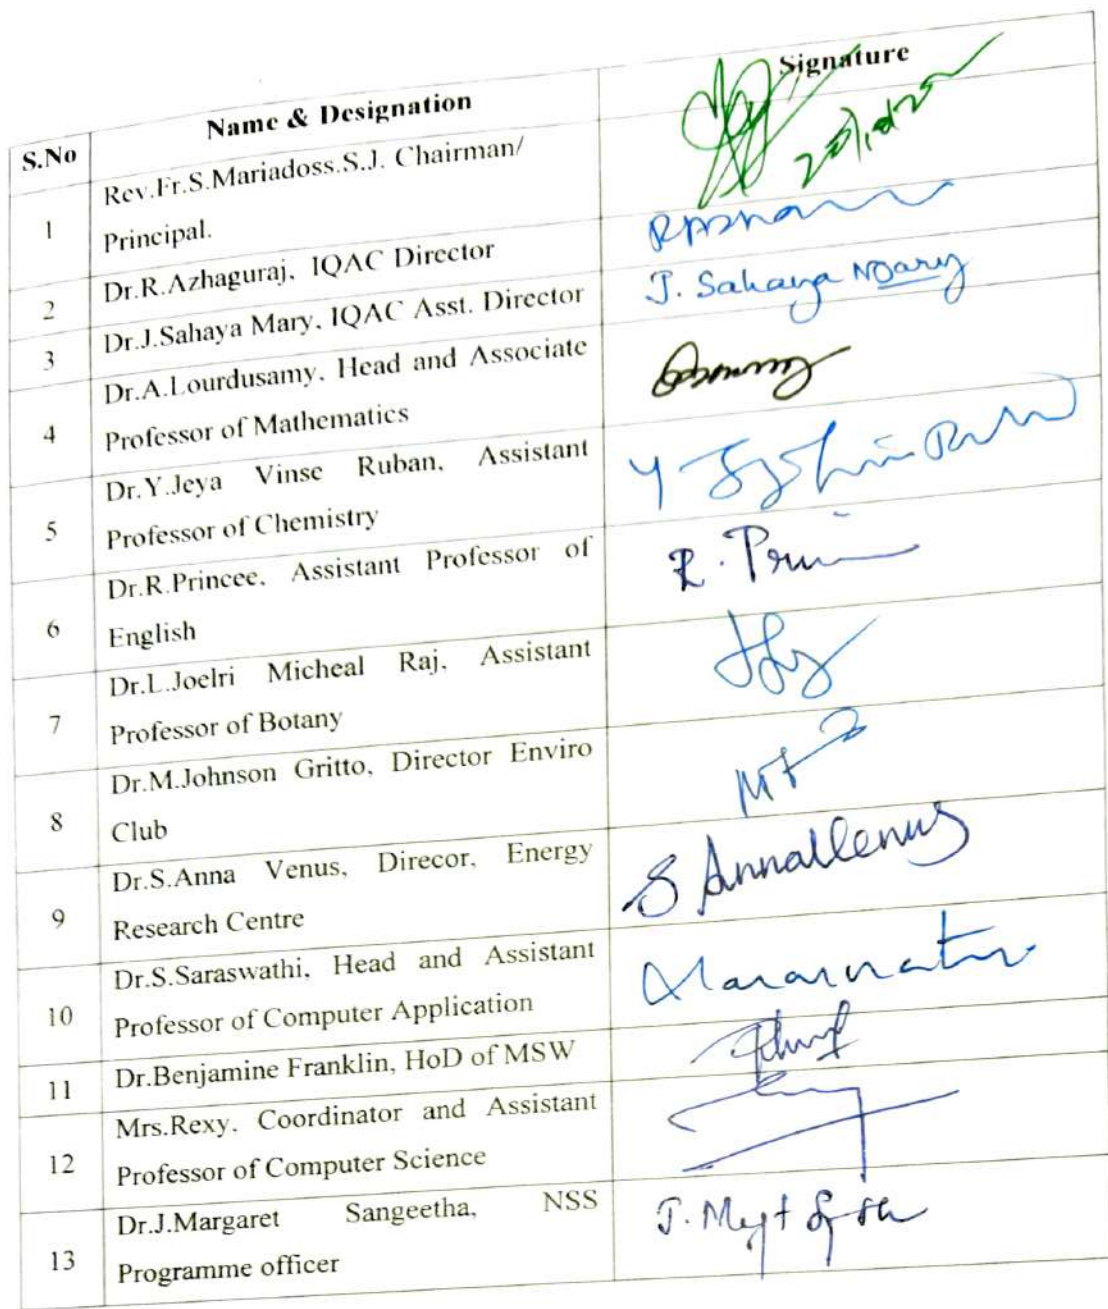 S.No Name & Designation Signature
1 Rev.Fr.S.Mariadoss.S.J. Chairman/
Principal.
2 Dr.R.Azhaguraj, IQAC Director
3 Dr.J.Sahaya Mary, IQAC Asst. Director J. Sahaya Mary
4 Dr.A.Lourdusamy, Head and Associate
Professor of Mathematics
5 Dr.Y.Jeya Vinse Ruban, Assistant
Professor of Chemistry
6 Dr.R.Princee, Assistant Professor of
English
7 Dr.L.Joelri Micheal Raj, Assistant
Professor of Botany
8 Dr.M.Johnson Gritto, Director Enviro
Club
9 Dr.S.Anna Venus, Direcor, Energy
Research Centre
S AnnaVenus
10 Dr.S.Saraswathi, Head and Assistant
Professor of Computer Application
11 Dr.Benjamine Franklin, HoD of MSW
12 Mrs.Rexy, Coordinator and Assistant
Professor of Computer Science
13 Dr.J.Margaret Sangeetha, NSS
Programme officer